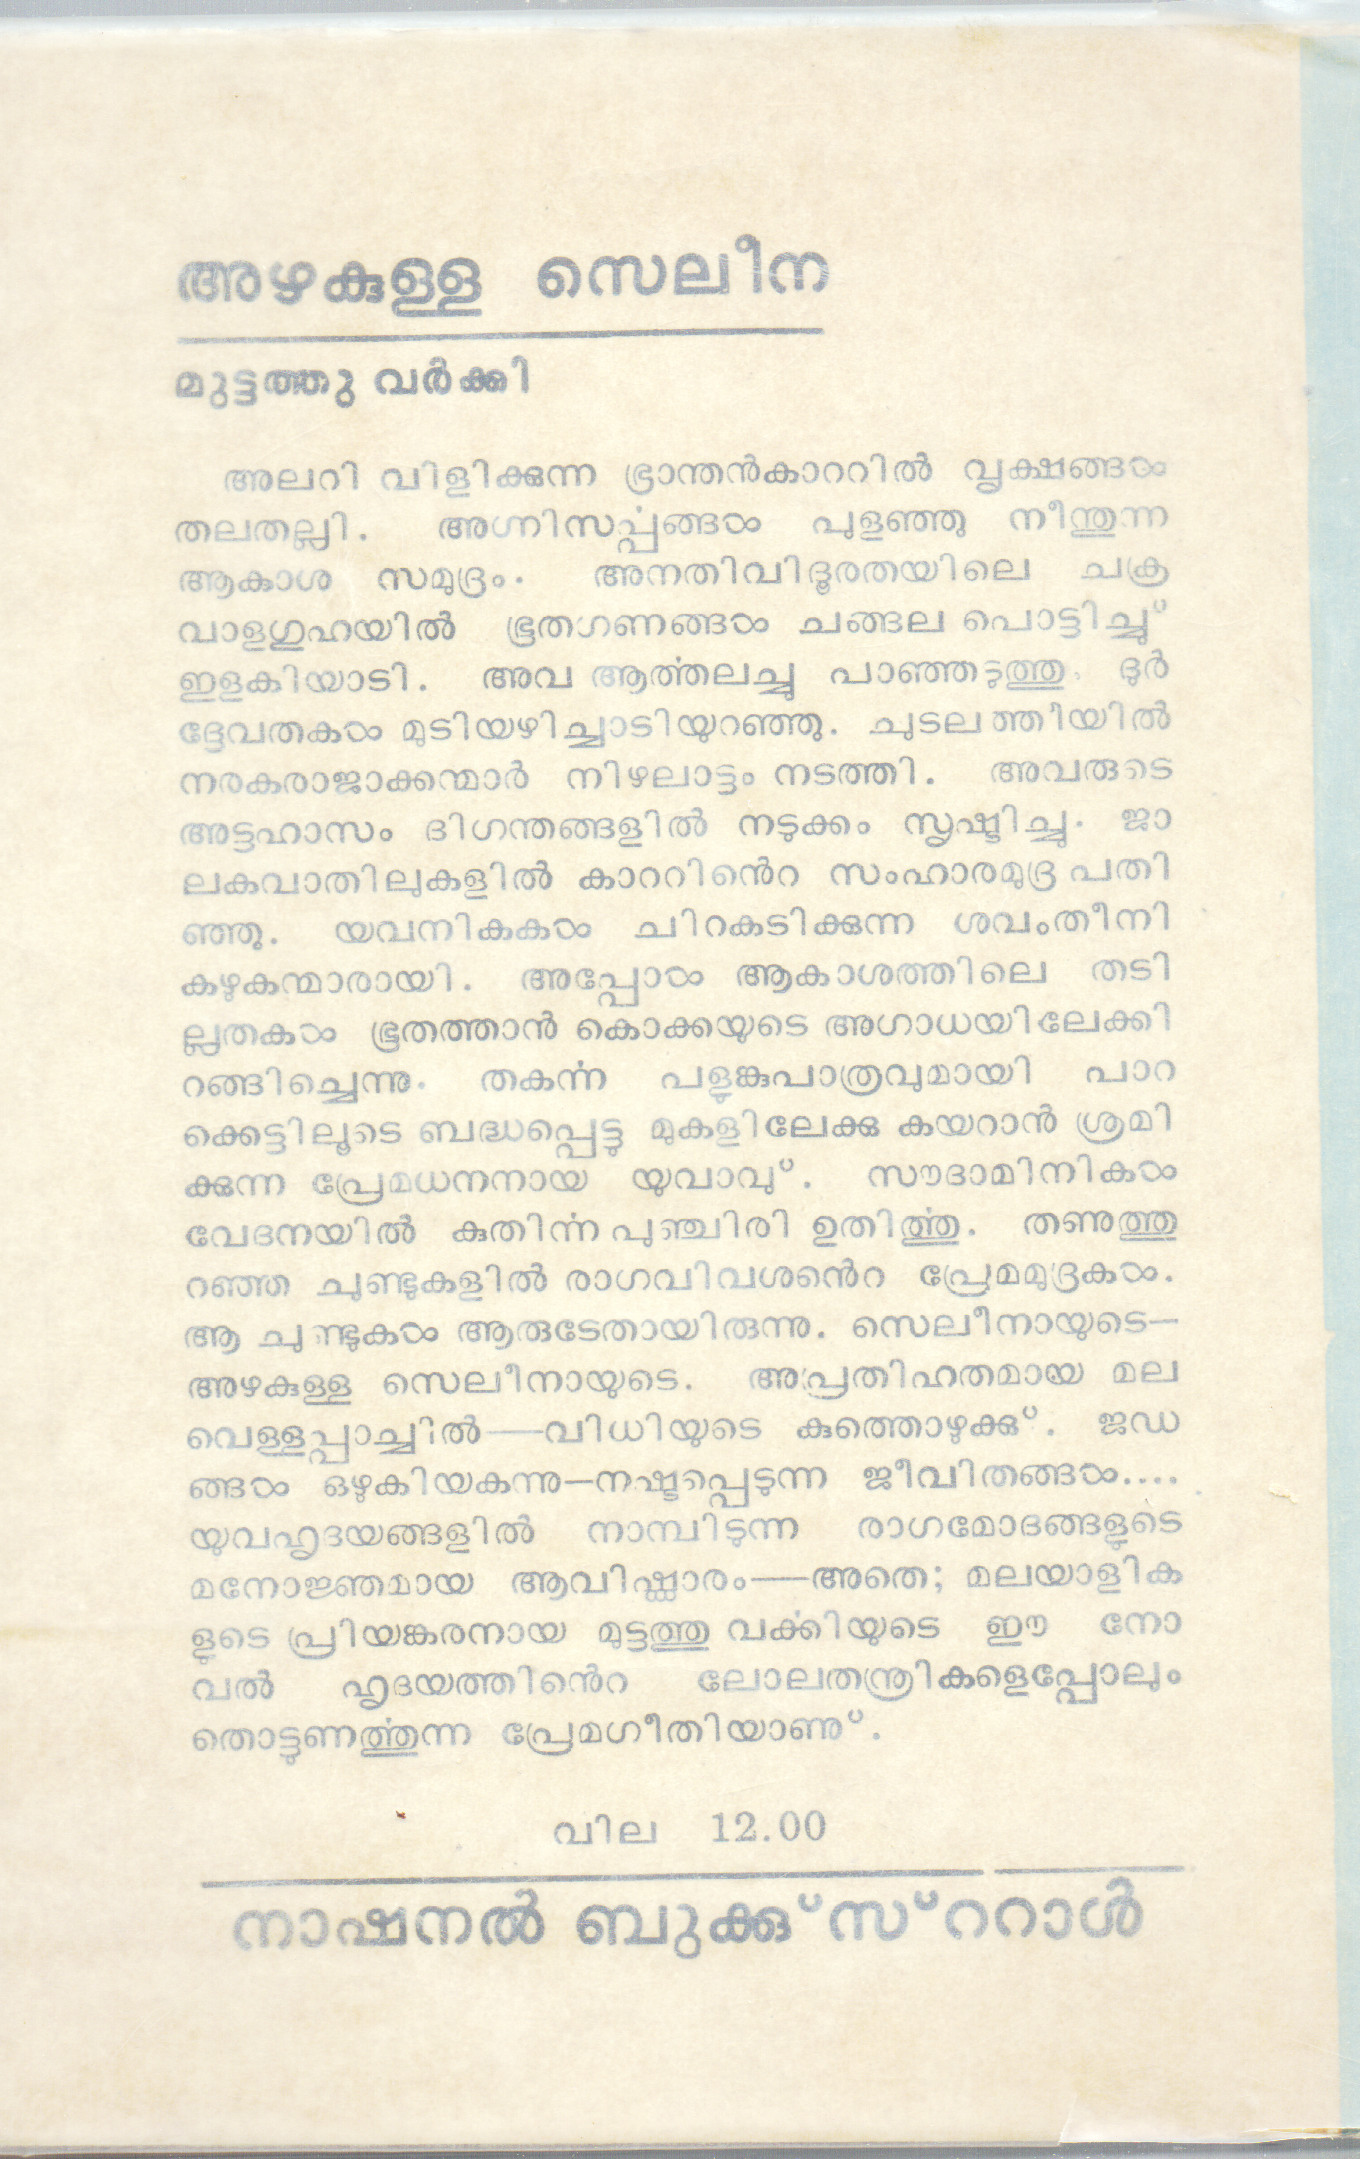 അഴകുള്ള സെലീന
മുട്ടത്തു വർക്കി
അലറി വിളിക്കുന്ന ഭ്രാന്തൻകാററിൽ വൃക്ഷങ്ങൾ
തലതല്ലി. അഗ്നിസൎപ്പങ്ങൾ പുളഞ്ഞു നീന്തുന്ന
ആകാശ സമുദ്രം. അനതിവിദൂരതയിലെ ചക്ര
വാളഗുഹയിൽ ഭൂതഗണങ്ങൾ ചങ്ങല പൊട്ടിച്ചു്
ഇളകിയാടി. അവ ആൎത്തലച്ചു പാഞ്ഞടുത്തു. ദുർ
ദ്ദേവതകൾ മുടിയഴിച്ചാടിയുറഞ്ഞു. ചുടലത്തീയിൽ
നരകരാജാക്കന്മാർ നിഴലാട്ടം നടത്തി. അവരുടെ
അട്ടഹാസം ദിഗന്തങ്ങളിൽ നടുക്കം സൃഷ്ടിച്ചു. ജാ
ലകവാതിലുകളിൽ കാററിൻെറ സംഹാരമുദ്ര പതി
ഞ്ഞു. യവനികകൾ ചിറകടിക്കുന്ന ശവംതീനി
കഴുകന്മാരായി. അപ്പോൾ ആകാശത്തിലെ തടി
ല്ലതകൾ ഭൂതത്താൻ കൊക്കയുടെ അഗാധയിലേക്കി
റങ്ങിച്ചെന്നു. തകൎന്ന പളുങ്കുപാത്രവുമായി പാറ
ക്കെട്ടിലൂടെ ബദ്ധപ്പെട്ടു മുകളിലേക്കു കയറാൻ ശ്രമി
ക്കുന്ന പ്രേമധനനായ യുവാവു്. സൗദാമിനികൾ
വേദനയിൽ കുതിൎന്ന പുഞ്ചിരി ഉതിൎത്തു. തണുത്തു
റഞ്ഞ ചുണ്ടുകളിൽ രാഗവിവശൻെറ പ്രേമമുദ്രകൾ.
ആ ചുണ്ടുകൾ ആരുടേതായിരുന്നു. സെലീനായുടെ—
അഴകുള്ള സെലീനായുടെ. അപ്രതിഹതമായ മല
വെള്ളപ്പാച്ചിൽ—വിധിയുടെ കുത്തൊഴുക്കു്. ജഡ
ങ്ങൾ ഒഴുകിയകന്നു—നഷ്ടപ്പെടുന്ന ജീവിതങ്ങൾ....
യുവഹൃദയങ്ങളിൽ നാമ്പിടുന്ന രാഗമോദങ്ങളുടെ
മനോജ്ഞമായ ആവിഷ്ക്കാരം—അതെ; മലയാളിക
ളുടെ പ്രിയങ്കരനായ മുട്ടത്തു വൎക്കിയുടെ ഈ നോ
വൽ ഹൃദയത്തിൻെറ ലോലതന്ത്രികളെപ്പോലും
തൊട്ടുണൎത്തുന്ന പ്രേമഗീതിയാണു്.
വില 12.00
നാഷനൽ ബുക്കു് സ്ററാൾ